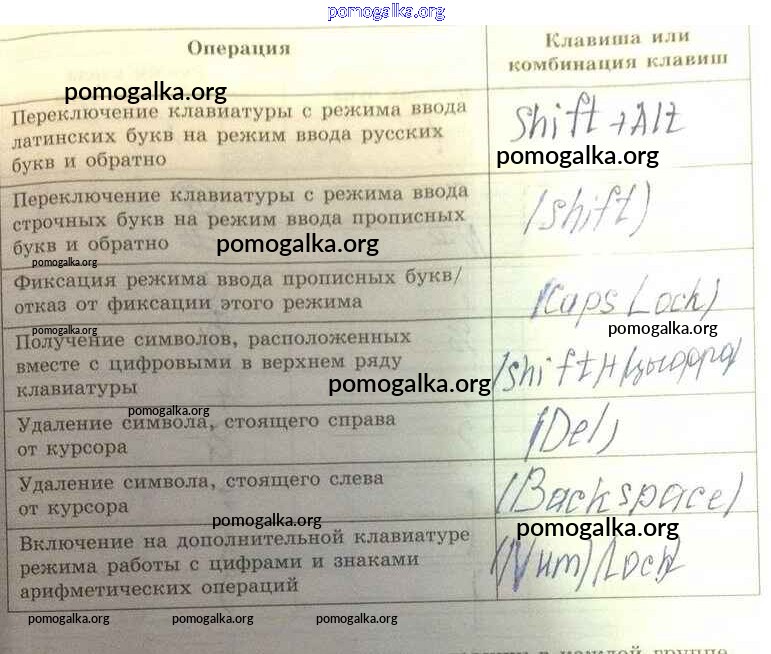 pomogalka.org
Операция
Клавиша или
комбинация клавиш
pomogalka.org
Переключение клавиатуры с режима ввода
латинских букв на режим ввода русских
букв и обратно
Shift +Alt
pomogalka.org
Переключение клавиатуры с режима ввода
строчных букв на режим ввода прописных
букв и обратно
(Shift)
pomogalka.org
pomogalka.org
Фиксация режима ввода прописных букв/
отказ от фиксации этого режима
(Caps Lock)
pomogalka.org
pomogalka.org
Получение символов, расположенных
вместе с цифровыми в верхнем ряду
клавиатуры
(Shift)+(цыфра)
pomogalka.org
pomogalka.org
Удаление символа, стоящего справа
от курсора
(Del)
Удаление символа, стоящего слева
от курсора
(Backspace)
pomogalka.org
pomogalka.org
Включение на дополнительной клавиатуре
режима работы с цифрами и знаками
арифметических операций
(Num)(Lock)
pomogalka.org pomogalka.org pomogalka.org
в каждой группе